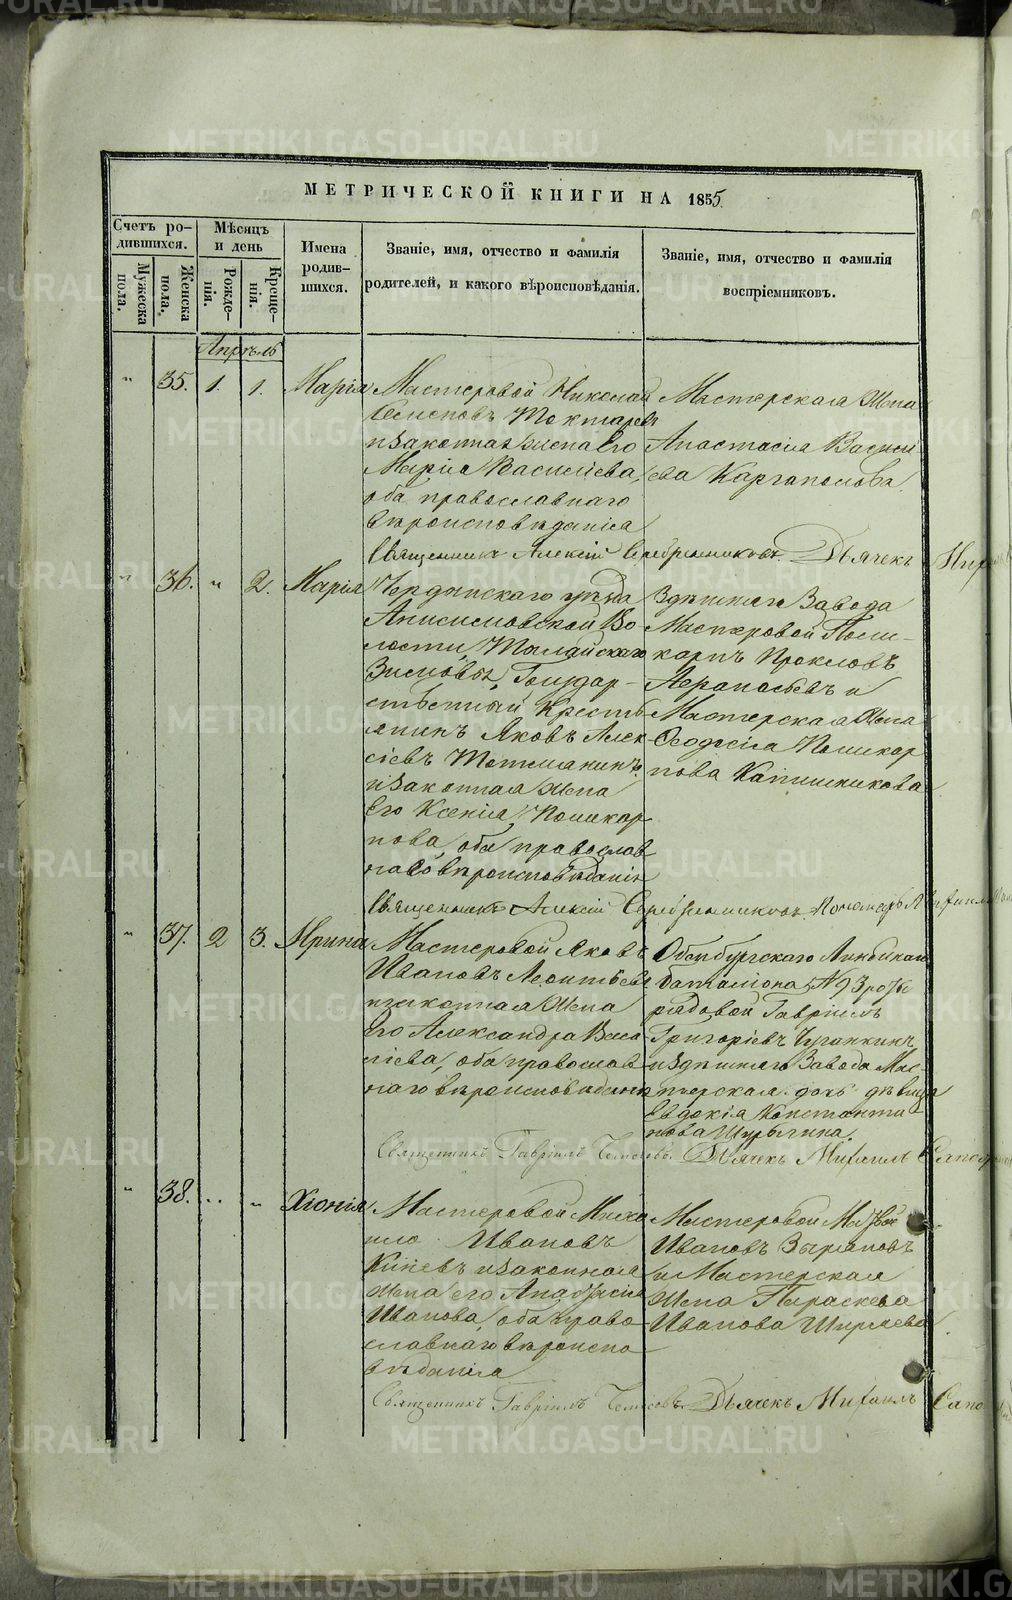 МЕТРИЧЕСКОЙ КНИГИ НА 1855
Счетъ родившихся.
Мужеска пола.
Женска пола.
Мѣсяцъ и день
Рожденія.
Крещенія.
Имена родившихся.
Званіе, имя, отчество и фамилія
родителей, и какого вѣроисповѣданія.
Званіе, имя, отчество и фамилія
воспріемниковъ.
Апрѣль
" 35. 1. 1. Марія
Мастеровой Николай
Семеновъ
и законная жена его
Марія Васильева,
оба православнаго
вѣроисповѣданія
Мастерская жена
Анастасія Василь
ева Каргаполова
Священникъ Алексій Серебренниковъ. Дьячекъ
" 36. " 2. Марія
Чердынскаго уѣзда
Анисимовской Во-
лости,
Государ-
ственный Кресть
янинъ Яковъ Алек
сіевъ
и законная жена
его Ксенія Поликар
пова, оба православ
наго вѣроисповѣданія
Здѣшняго Завода
Мастеровой Поли-
карпъ Прокловъ
и
Мастерская жена
Ѳеодосія Поликар
пова
Священникъ Алексій Серебренниковъ. Пономарь
" 37. 2 3. Ирина
Мастеровой Яковъ
Ивановъ Леонтьевъ
и законная жена
его Александра Васи
ліева, оба православ
наго вѣроисповѣданія
Оренбургскаго Линейнаго
баталіона № 9 роты
рядовой Гавріилъ
Григоріевъ
и здѣшняго Завода Мас-
терская дочь дѣвица
Евдокія Константи
нова
Священникъ Гавріилъ Дьячекъ Михаилъ
" 38. " " Хіонія
Мастеровой Миха
ило Ивановъ
и законная
жена его Анафисія
Иванова, оба право-
славнаго вѣроиспо
вѣданія
Мастеровой Матвей
Ивановъ Зыряновъ
и Мастерская
жена Параскева
Иванова Ширяева
Священникъ Гавріилъ Дьячекъ Михаилъ
METRIKI.GASO-URAL.RU